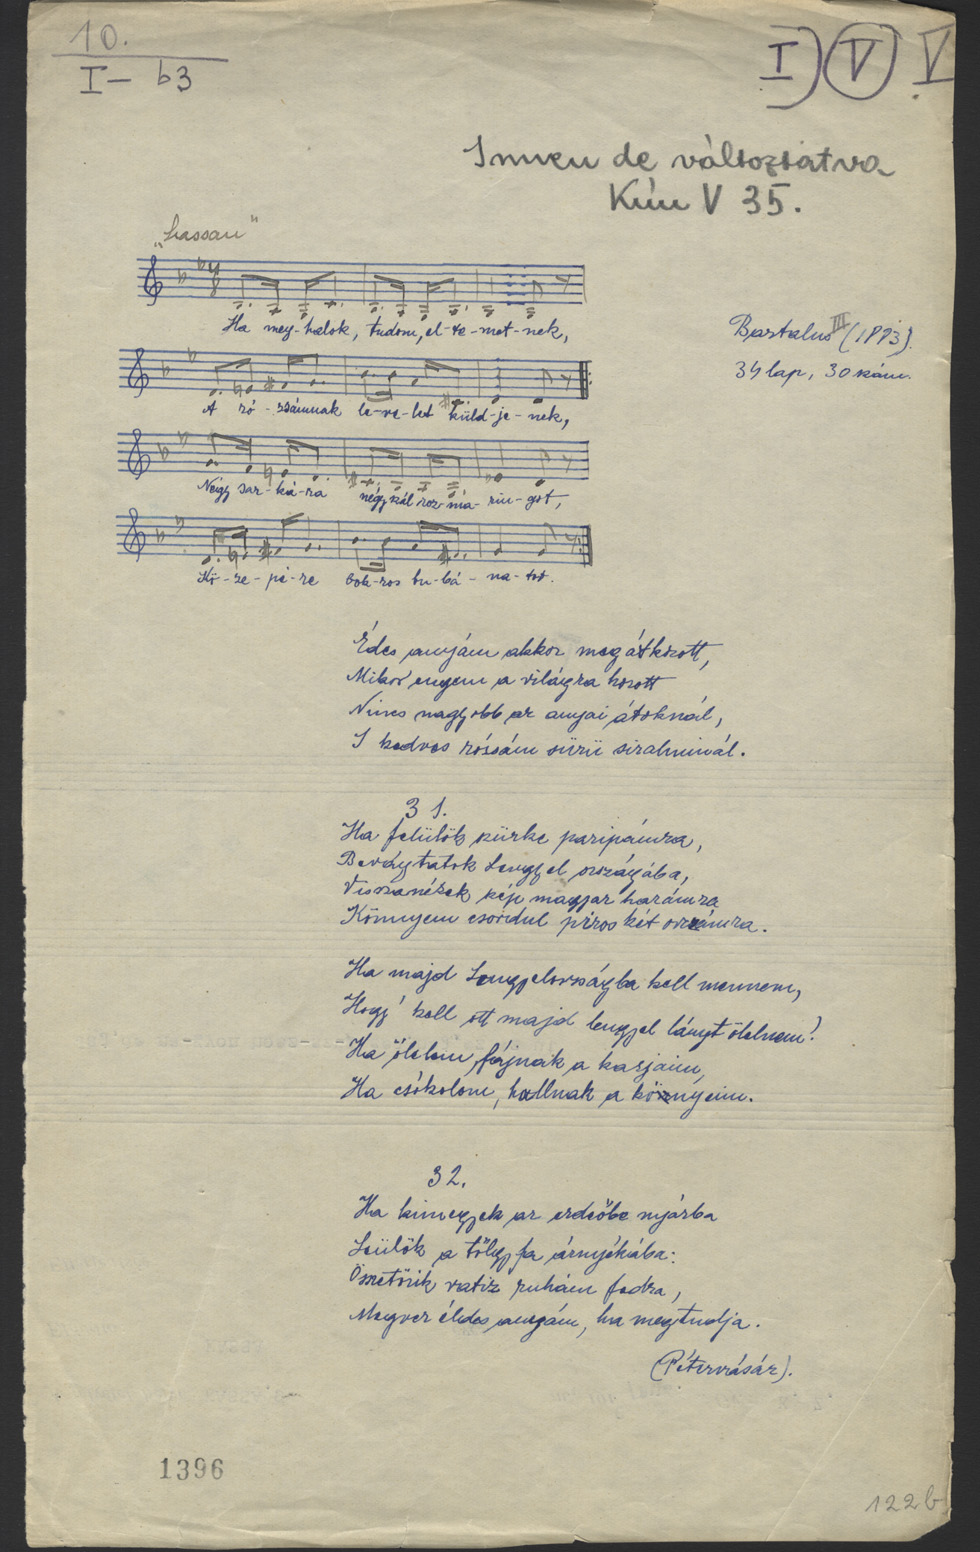 10.
I- b3
I) V V
Innen de változtatva
Kún V 35.
"Lassan"
Ha meg-halok, tudom, el-te-met-nek,
Bartalus III (1883).
34 lap, 30 szám.
A ró-zsámnak le-ve-let küld-je-nek,
Négy sar-ká-ra négy szál roz-ma-rin-got,
Kö-ze-pé-re bok-ros bu-bá-na-tot.
Édes anyám akkor megátkozott,
Mikor engem a világra hozott
Nincs nagyobb az anyai átoknál,
S kedves rózsám sürü siralminál.
31.
Ha felülök szürke paripámra,
Bevágtatok Lengyel országába,
Visszanézek szép magyar hazámra
Könnyem csordul piros két orcámra.
Ha majd Lengyelországba kell mennem,
Hogy' kell ott majd lengyel lányt ölelnem!
Ha ölelem, fájnak a karjaim,
Ha csókolom, hullnak a könnyeim.
32.
Ha kimegyek az erdőbe nyárba
Leülök a tölgyfa árnyékába:
Összetörik ruhám fodra,
Megver édes anyám, ha megtudja.
(Pétervására).
1396
122b